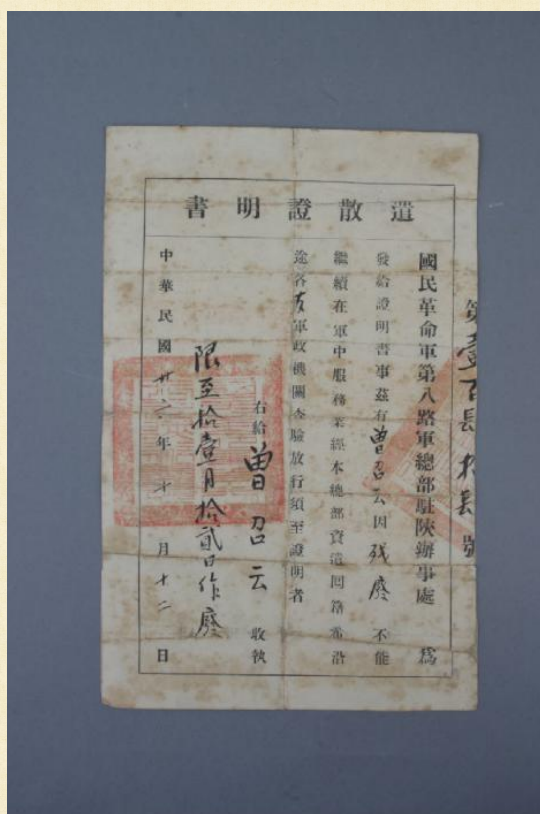 遣散證明書
國民革命軍第八路軍總部駐陝辦事處 為
發給證明書事茲有曾召云因残廢不能
繼續在軍中服務業經本總部資遣回籍希沿
途各友軍政機關查驗放行須至證明者
右給 曾召云 收執
限至拾壹月拾貳日作廢
中華民國廿六年 月十二日